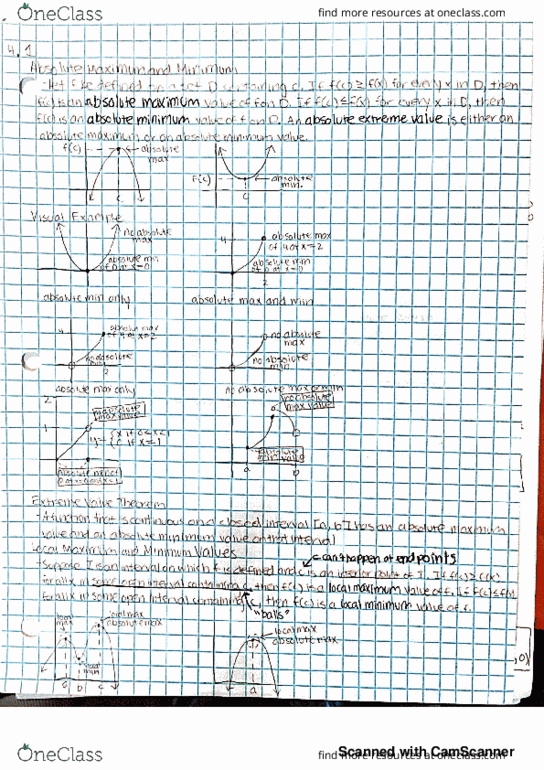 OneClass
find more resources at oneclass.com
4.1
Absolute Maximum and Minimum
- Let f be defined on a set D containing c. If f(c) ≥ f(x) for every x in D, then
f(c) is an absolute maximum value of f on D. If f(c) ≤ f(x) for every x in D, then
f(c) is an absolute minimum value of f on D. An absolute extreme value is either an
absolute maximum or an absolute minimum value.
f(c) absolute max
c
f(c) absolute min.
c
Visual Example
no absolute max
absolute min of 0 at x=0
4 absolute max of 4 at x=2
absolute min of 0 at x=0
2
absolute min only
absolute max and min
4 absolute max of 4 at x=2
no absolute
2
no absolute max
no absolute min
absolute max only
no absolute max or min
2
1
y= { x if 0<x<1
if x=1
no absolute max value
a b
Extreme Value Theorem
- A function that is continuous on a closed interval [a,b] has an absolute maximum
value and an absolute minimum value on that interval
Local Maximum and Minimum Values
can't happen at endpoints
- Suppose I is an interval on which f is defined and c is an interior point of I. If f(c) ≥ f(x)
for all x in some open interval containing c, then f(c) is a local maximum value of f. If f(c) ≤ f(x)
for all x in some open interval containing c, then f(c) is a local minimum value of f.
"balls"
local max
local max
absolute max
local min
a b c
local max
absolute max
a
OneClass
find more resources at oneclass.com
Scanned with CamScanner